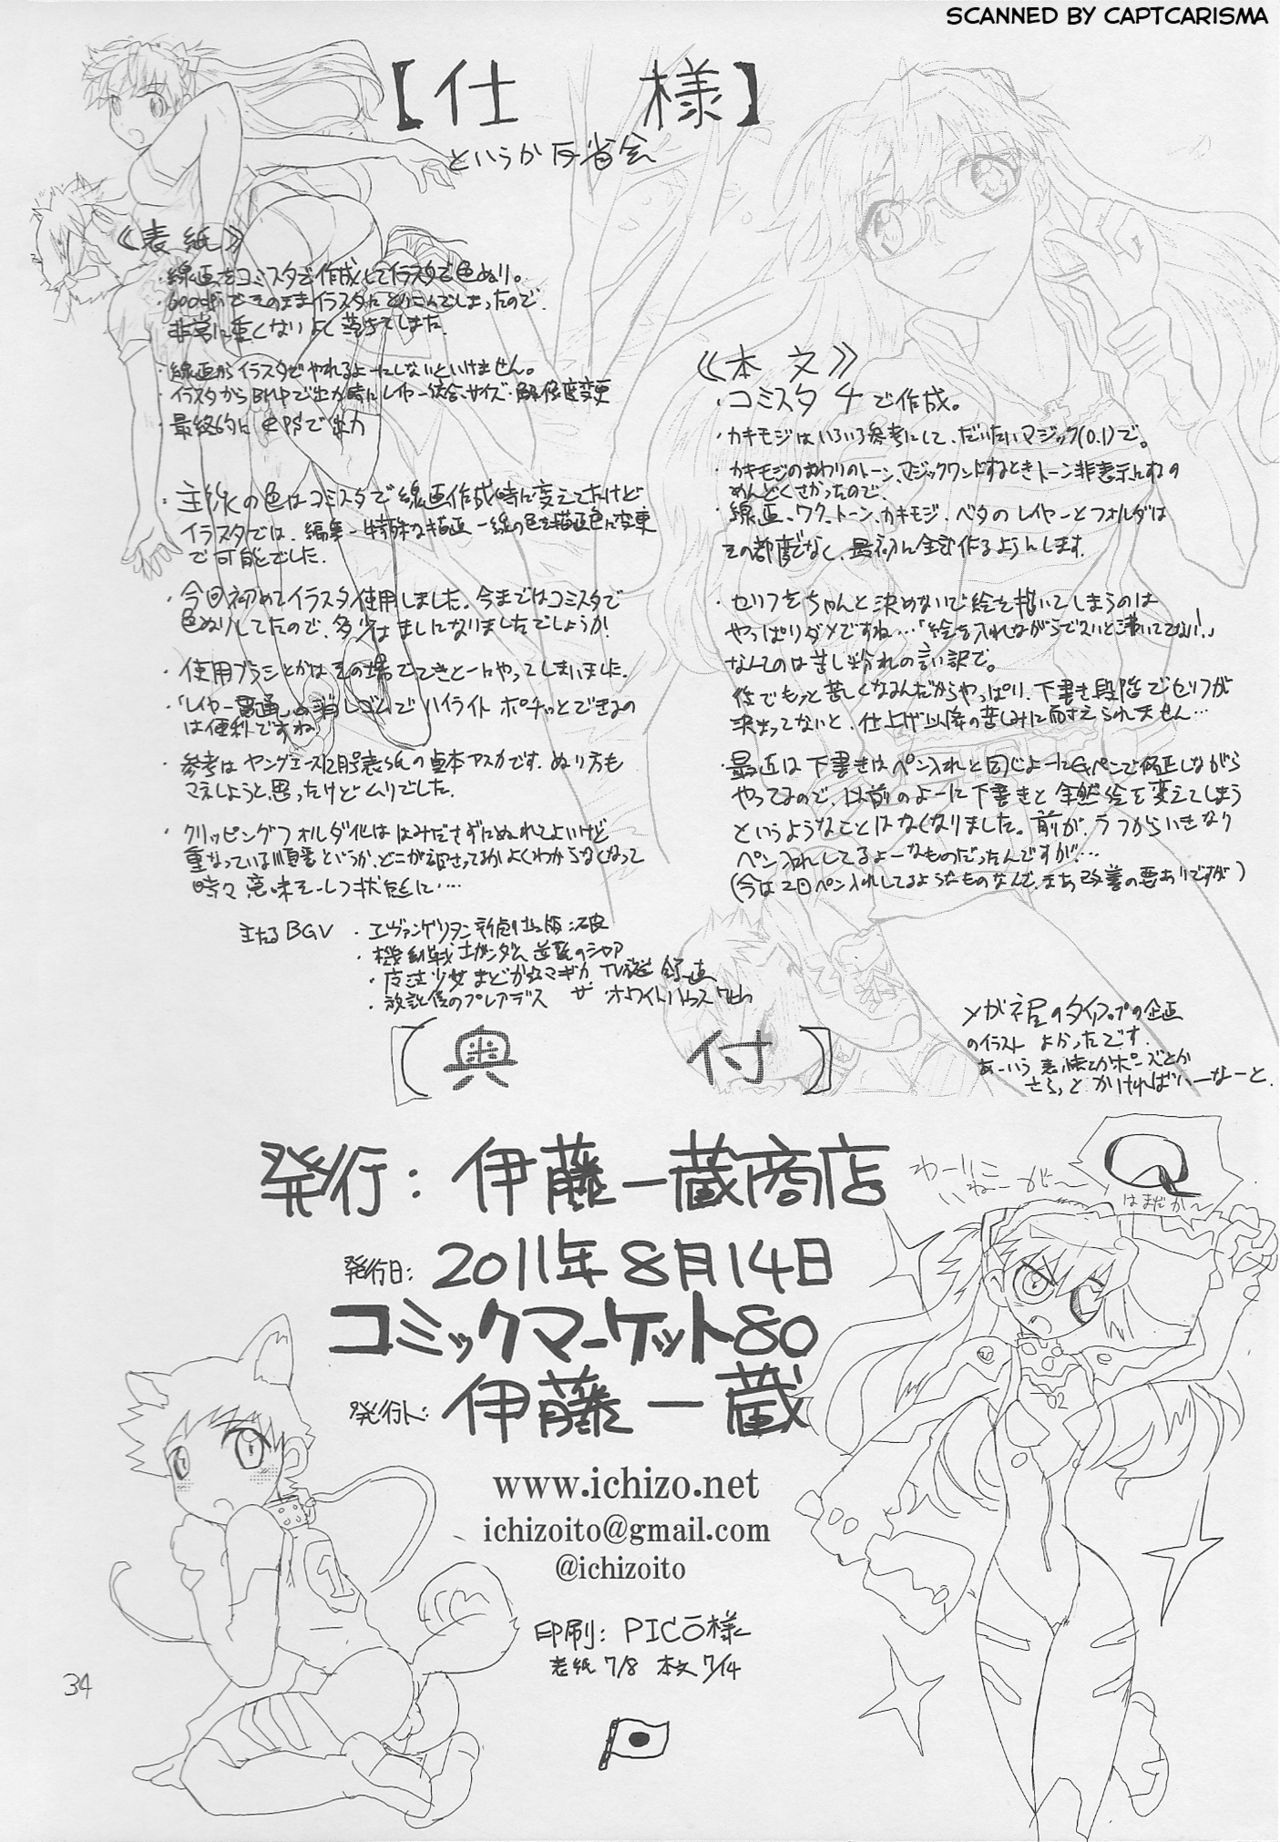 SCANNED BY CAPTCARISMA
【仕 様】
というか反省会
《表紙》
・線画をコミスタで作成してイラスタで色ぬり。
・600dpiでそのままイラスタにとりこんでしまったので、
非常に重くなりよく落ちてしまた。
・線画からイラスタでやれるよーにしないといけません。
・イラスタからBMPで出力時にレイヤー結合、サイズ・解像度変更
・最終的にEPSで出力
・主線の色はコミスタで線画作成時に変えてたけど
イラスタでは、編集－特殊な描画－線の色を描画色に変更
で可能でした。
・今回初めてイラスタ使用しました。今まではコミスタで
色ぬりしてたので、多少はましになりましたでしょうか?
・使用ブラシとかはその場でてきとーにやってしまいました。
・「レイヤー貫通」の消しゴムでハイライト ポチッとできるの
は便利ですね。
・参考はヤングエース12月号表紙の貞本アスカです。ぬり方も
マネしようと思ったけどムリでした。
・クリッピングフォルダ化は はみださずにぬれてよいけど
重なっている順番というか、どこが
よくわからなくなって
時々意味そーしつ状態に‥‥
主たるBGV ・エヴァンゲリヲン新劇場版:破
・機動戦士ガンダム 逆襲のシャア
・魔法少女まどか☆マギカ TV放送録画
・放課後のプレアデス ザ・ホワイトハウス
《本文》
・コミスタ4で作成。
・カキモジはいろいろ参考にして、だいたいマジック(0.1)で。
・カキモジのまわりのトーン、マジックワンドするときトーン非表示にするの
めんどくさかったので、
・線画、ワク、トーン、カキモジ、ベタのレイヤーとフォルダは
その都度でなく、最初に全部作るようにします。
・セリフをちゃんと決めないで絵を描いてしまうのは
やっぱりダメですね…「絵を入れながらでないと湧いてこない!」
なんてのは苦し紛れの言い訳で。
後でもっと苦しくなるんだからやっぱり、下書き段階でセリフが
決まってないと、仕上げ以降の苦しみに耐えられません…
・最近は下書きはペン入れと同じよーにGペンで修正しながら
やってるので、以前のよーに下書きと全然絵を変えてしまう
というようなことはなくなりました。前が、ラフからいきなり
ペン入れしてるよーなものだったんですが…
(今は2回ペン入れしてるようなものなんで、まだ改善の要ありですが)
メガネ屋のタイアップの企画
のイラスト よかったです。
あーいう表情とかポーズとか
さらっと かければいーなーと。
【奥 付】
発行:伊藤一蔵商店
発行日:2011年8月14日
コミックマーケット80
発行人:伊藤一蔵
www.ichizo.net
ichizoito@gmail.com
@ichizoito
印刷:PICO様
表紙 7/8 本文 7/14
わーりーこ
いねーがー
Q
はまだか～
02
1
34